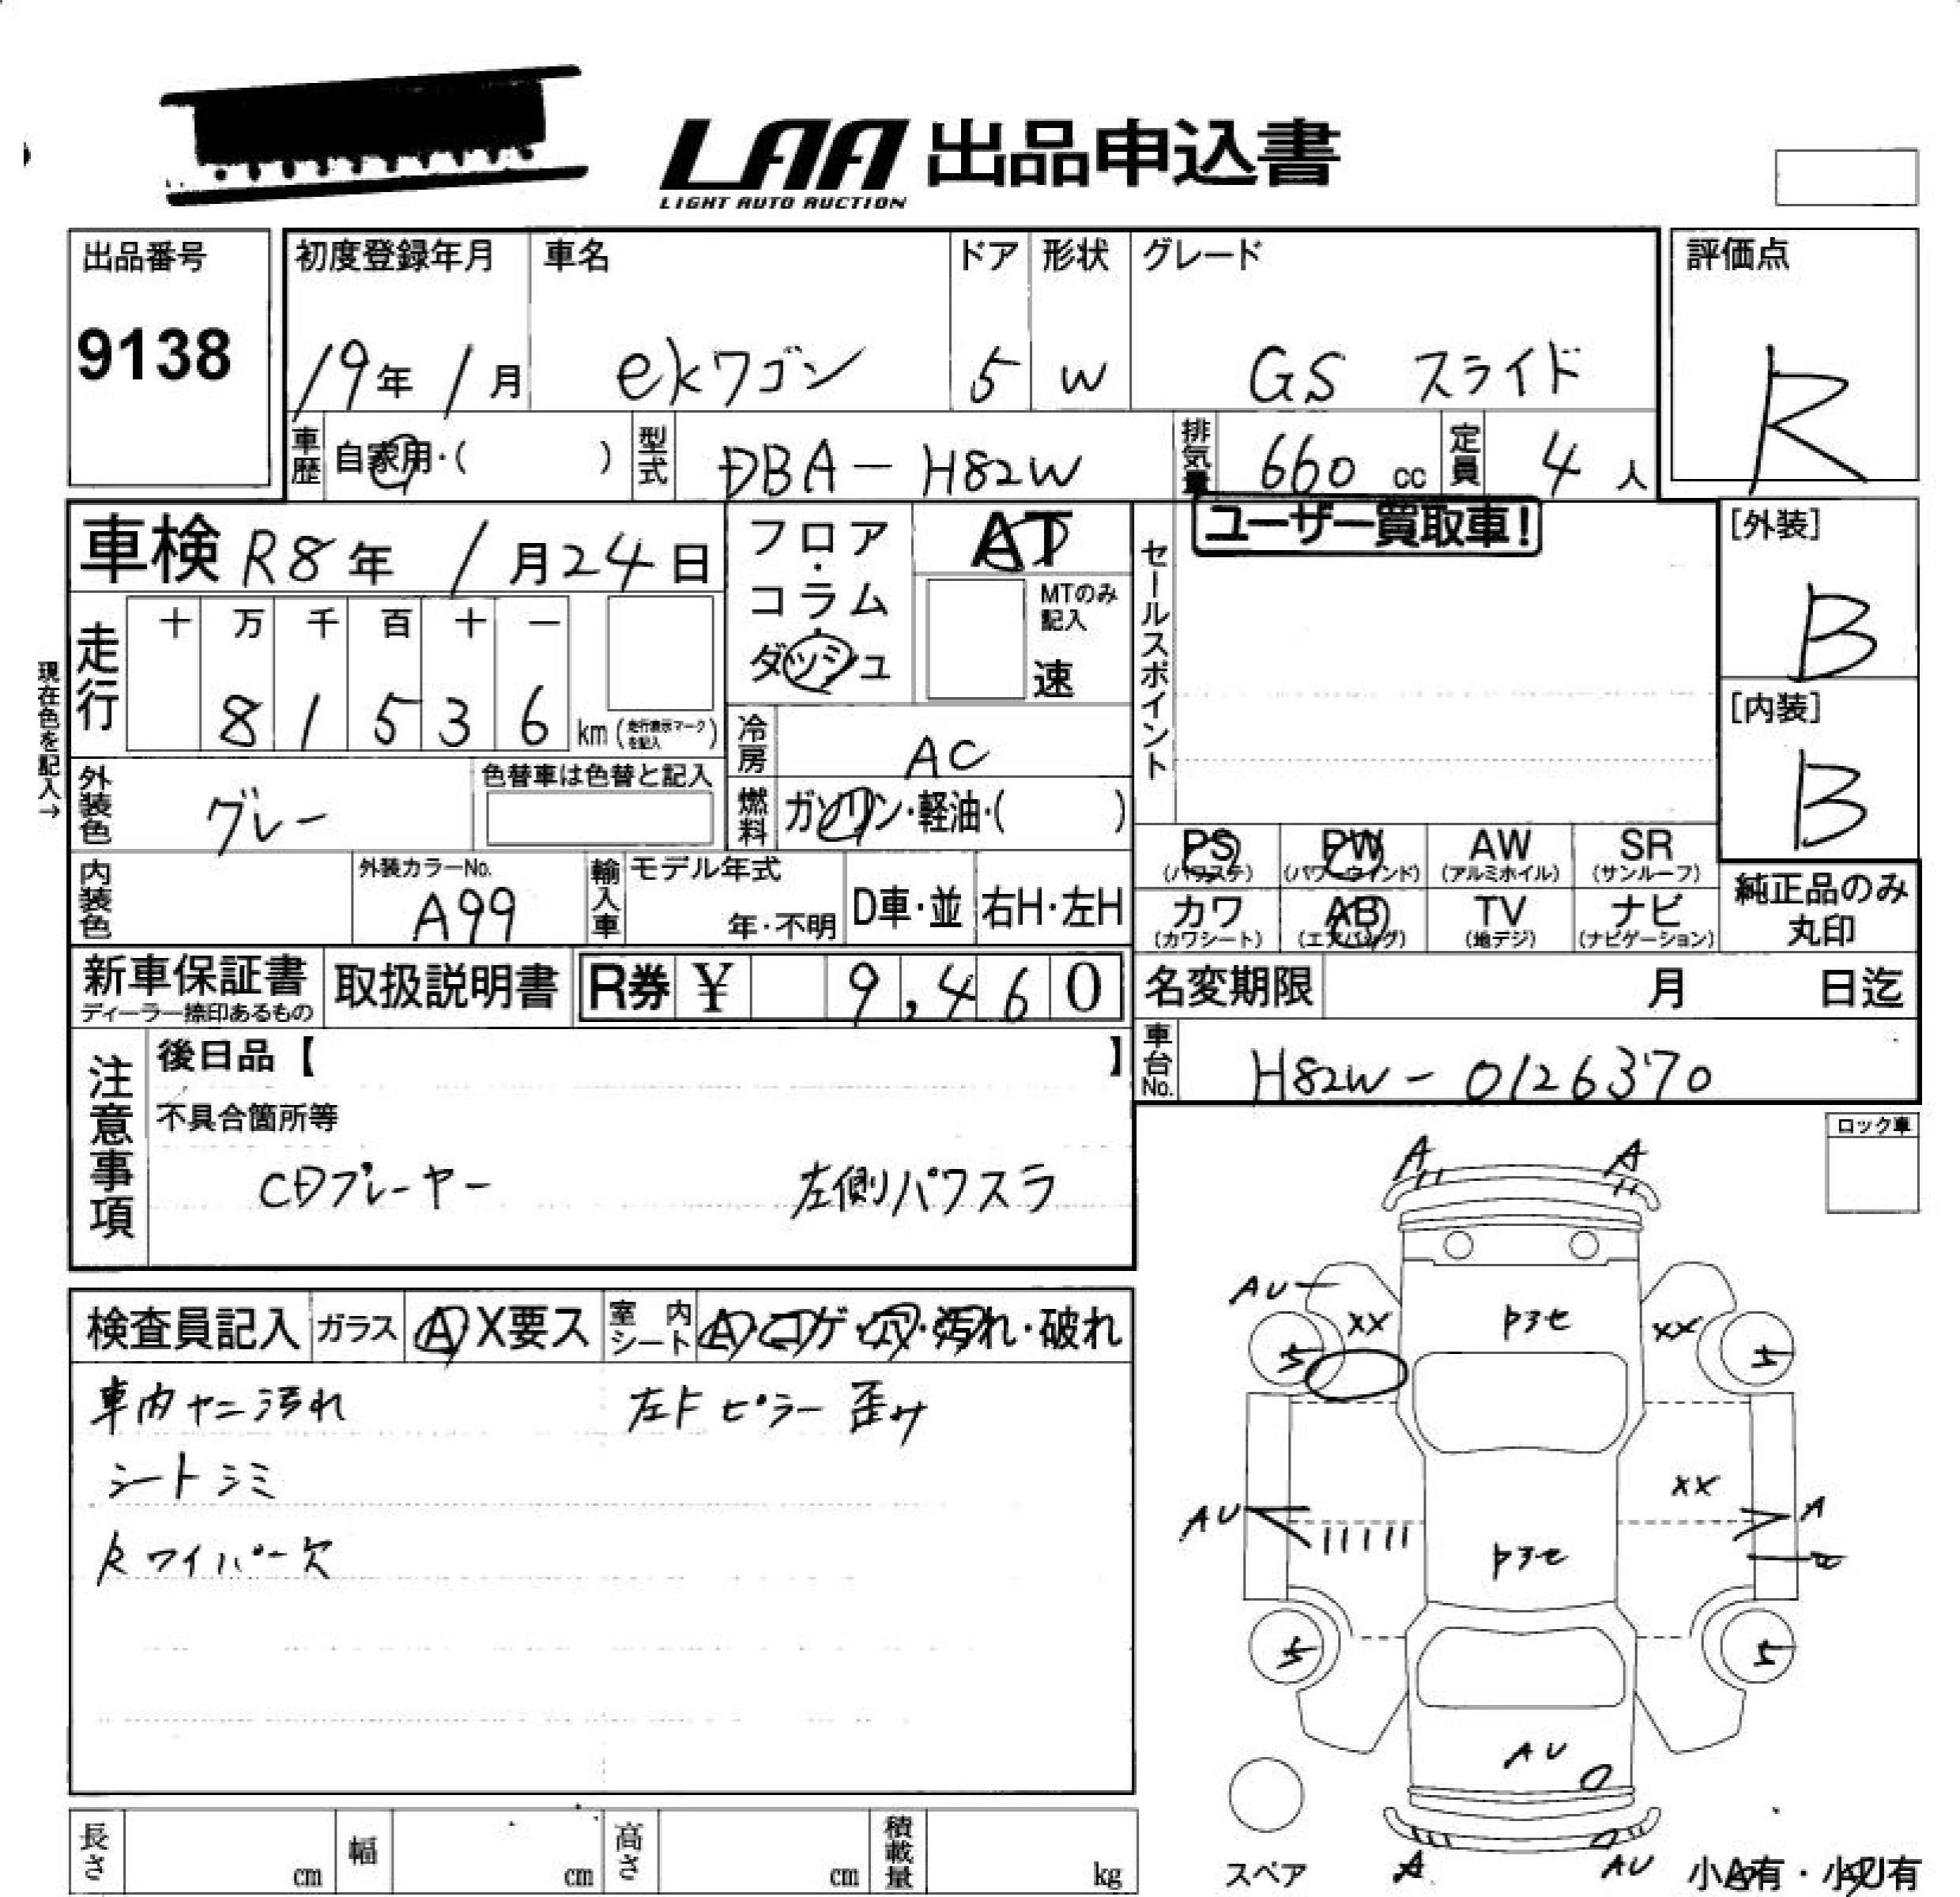 LAA 出品申込書
LIGHT AUTO AUCTION
出品番号
9138
初度登録年月
19年 1月
車名
ekワゴン
ドア
5
形状
W
グレード
GS スライド
評価点
R
車歴 自家用・( )
型式 DBA-H82W
排気量 660 cc
定員 4人
車検 R8年 1月24日
フロア・コラム・ダッシュ
AT
MTのみ記入
速
セールスポイント
ユーザー買取車!
[外装]
B
[内装]
B
現在色を記入→
走行 十 万 千 百 十 一
8 1 5 3 6 km (走行表示マークを記入)
冷房 AC
燃料 ガソリン・軽油・( )
外装色 グレー
色替車は色替と記入
内装色
外装カラーNo.
A99
輸入車 モデル年式
年・不明
D車・並
右H・左H
PS (パワステ)
PW (パワーウインド)
AW (アルミホイル)
SR (サンルーフ)
カワ (カワシート)
AB (エアバッグ)
TV (地デジ)
ナビ (ナビゲーション)
純正品のみ丸印
新車保証書
ディーラー捺印あるもの
取扱説明書
R券 ¥ 9,460
名変期限 月 日迄
車台No. H82W-0126370
注意事項
後日品【 】
不具合箇所等
CDプレーヤー 左側パワスラ
ロック車
検査員記入
ガラス A X要ス
室内シート A・コゲ・穴・汚れ・破れ
車内ヤニ汚れ 左Fピラー歪み
シートシミ
Rワイパー欠
A A
AU
XX XX
5 5
XX
AU A
5 5
AU
A AU
スペア
小A有・小U有
長さ cm
幅 cm
高さ cm
積載量 kg